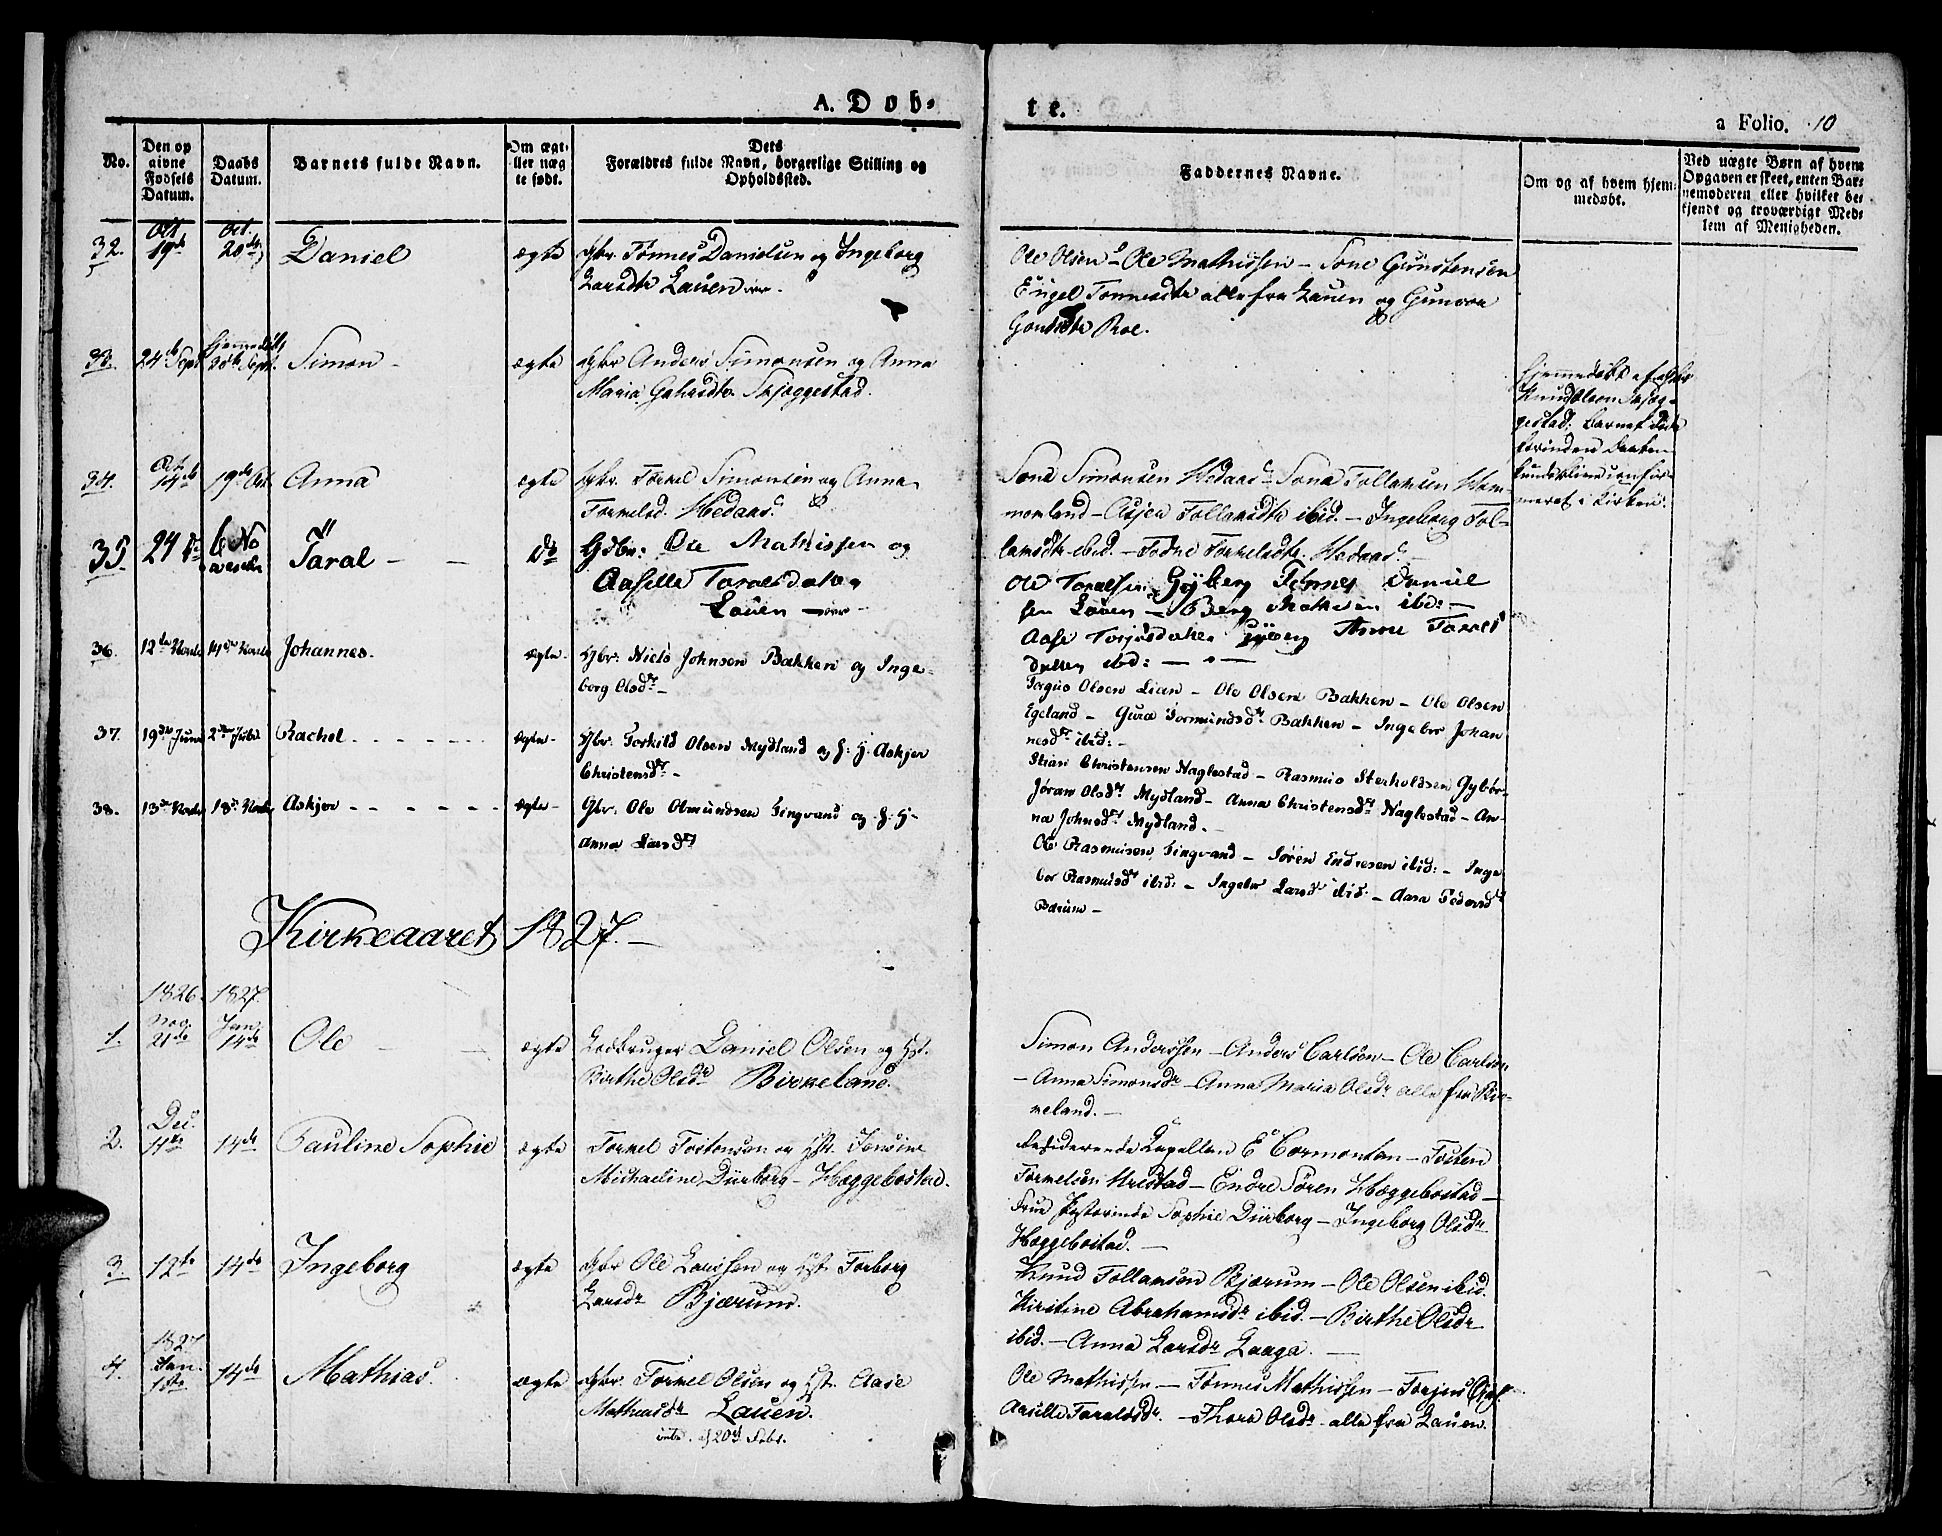 A. Døb-
te.
a Folio. 10
No.
Den op
givne
Fødsels
Datum.
Daabs
Datum.
Barnets fulde Navn.
Om ægt-
ller uæg
te født.
Dets
Forældres fulde Navn, borgerlige Stilling og
Opholdssted.
Faddernes Navne.
Om og af hvem hjem-
medøbt.
Ved uægte Børn af hvem
Opgaven er skeet, enten Bar-
nemoderen eller hvilket be-
kjendt og troværdigt Med-
lem af Menigheden.
32. Oct 19de Oct. 20de Daniel ægte Gbr. Tønnes Danielsen og Ingeborg
Larsdtr Lauen
Ole Olsen - Ole Mathissen - Gunstensen
Engel Tønnesdtr alle fra Lauen og Gunvor
Roe.
33. 24de Sept 28de Sept. Simon ægte Gbr Anders Simonsen og Anna
Maria Skjeggestad.
Knud Olsen Skjeg-
gestad. Barnet døde
34. Oct. 14de 19de Oct Anna ægte Gbr. Tørkel Simonsen og Anna
Tørkelsd. Hedaas.
Simonsen Hedaas - Tollaksen Hom-
menland - Asjer ibid. - Ingeborg Tol-
ibid. - Hedaas
35 24 Do 6 No
vember Taral - - Do Gdbr: Ole Mathissen og
Aaselle Taralsdatter
Lauen
Ole Taralsen Gyberg Tønnes Daniel
sen Lauen - Berg Mathisen ibd: -
Aase datter Gyberg Anne Tarals
datter ibd: -
36. 12te Novbr 14de Novbr Johannes. ægte Gbr. Niels Johnsen Bakken og Inge-
borg Olsdr -
Torgius Olsen Lian - Ole Olsen Bakken - Ole Olsen
Egeland - Gura Gormundsdr Bakken - Ingebor Johan
nesdr ibid: -
37. 19de Juni 2den Julii Rachel - - - ægte - Gbr. Torkild Olsen Mydland og H: H: Askjer
Christensdr -
Stian Christensen Naglestad - Rasmus Sterkoldsen Gyber-
Jøran Olsdr Mydland - Anna Christensdr Naglestad - An-
na Johnsdr Mydland. -
38. 13de Novbr 18de Novbr Askjer - - - ægte - Gbr. Ole Olmundsen Lingvand og H: H-
Anna Larsdr
Ole Rasmusen Lingvand - Søren Endresen ibid: - Inge
bor Rasmusdr ibid: - Ingebor Larsdr ibid: - Aasa Pedersdr
Bærum -
Kirkeaaret 1827. -
1826. 1827.
1. Nov. 21de Jan. 14de Ole - - ægte Ledbruger Daniel Olsen og Hst.
Birthe Olsdr Birkeland.
Simon Anderssen - Anders Carlsen - Ole Carlsen
- Anna Simonsdr - Anna Maria Olsdr alle fra Bir-
keland. -
2. Dec. 11te 14de Pauline Sophie ægte Tørkel Tostensen og Hstr. Jensine
Michaeline Dürborg - Hæggebostad.
Residerende Capellan E Cormontan - Tosten
Tørkelsen Uristad - Endre Søren Hæggebostad -
Frue Pastorinde Sophie Dürborg - Ingeborg Olsdr
Hæggebostad. -
3. 12te 14de Ingeborg ægte Gbr Ole Larssen og Hst. Torborg
Larsdr Bjærum.
Knud Tollaksen Bjærum - Ole Olsen ibid.
Kiristine Abrahamsdr ibid. - Birthe Olsdr
ibid. - Anna Larsdr Laaga. -
4. 1827 Jan. 1ste 14de Mathias. ægte Gbr. Tørkel Olsen og Hst. Aase
Mathiasdr Lauen.
20de Febr.
Ole Mathissen - Tønnes Mathissen - Torjus
Aaselle Taraldsdr. - Thora Olsdr. alle fra Lauen.